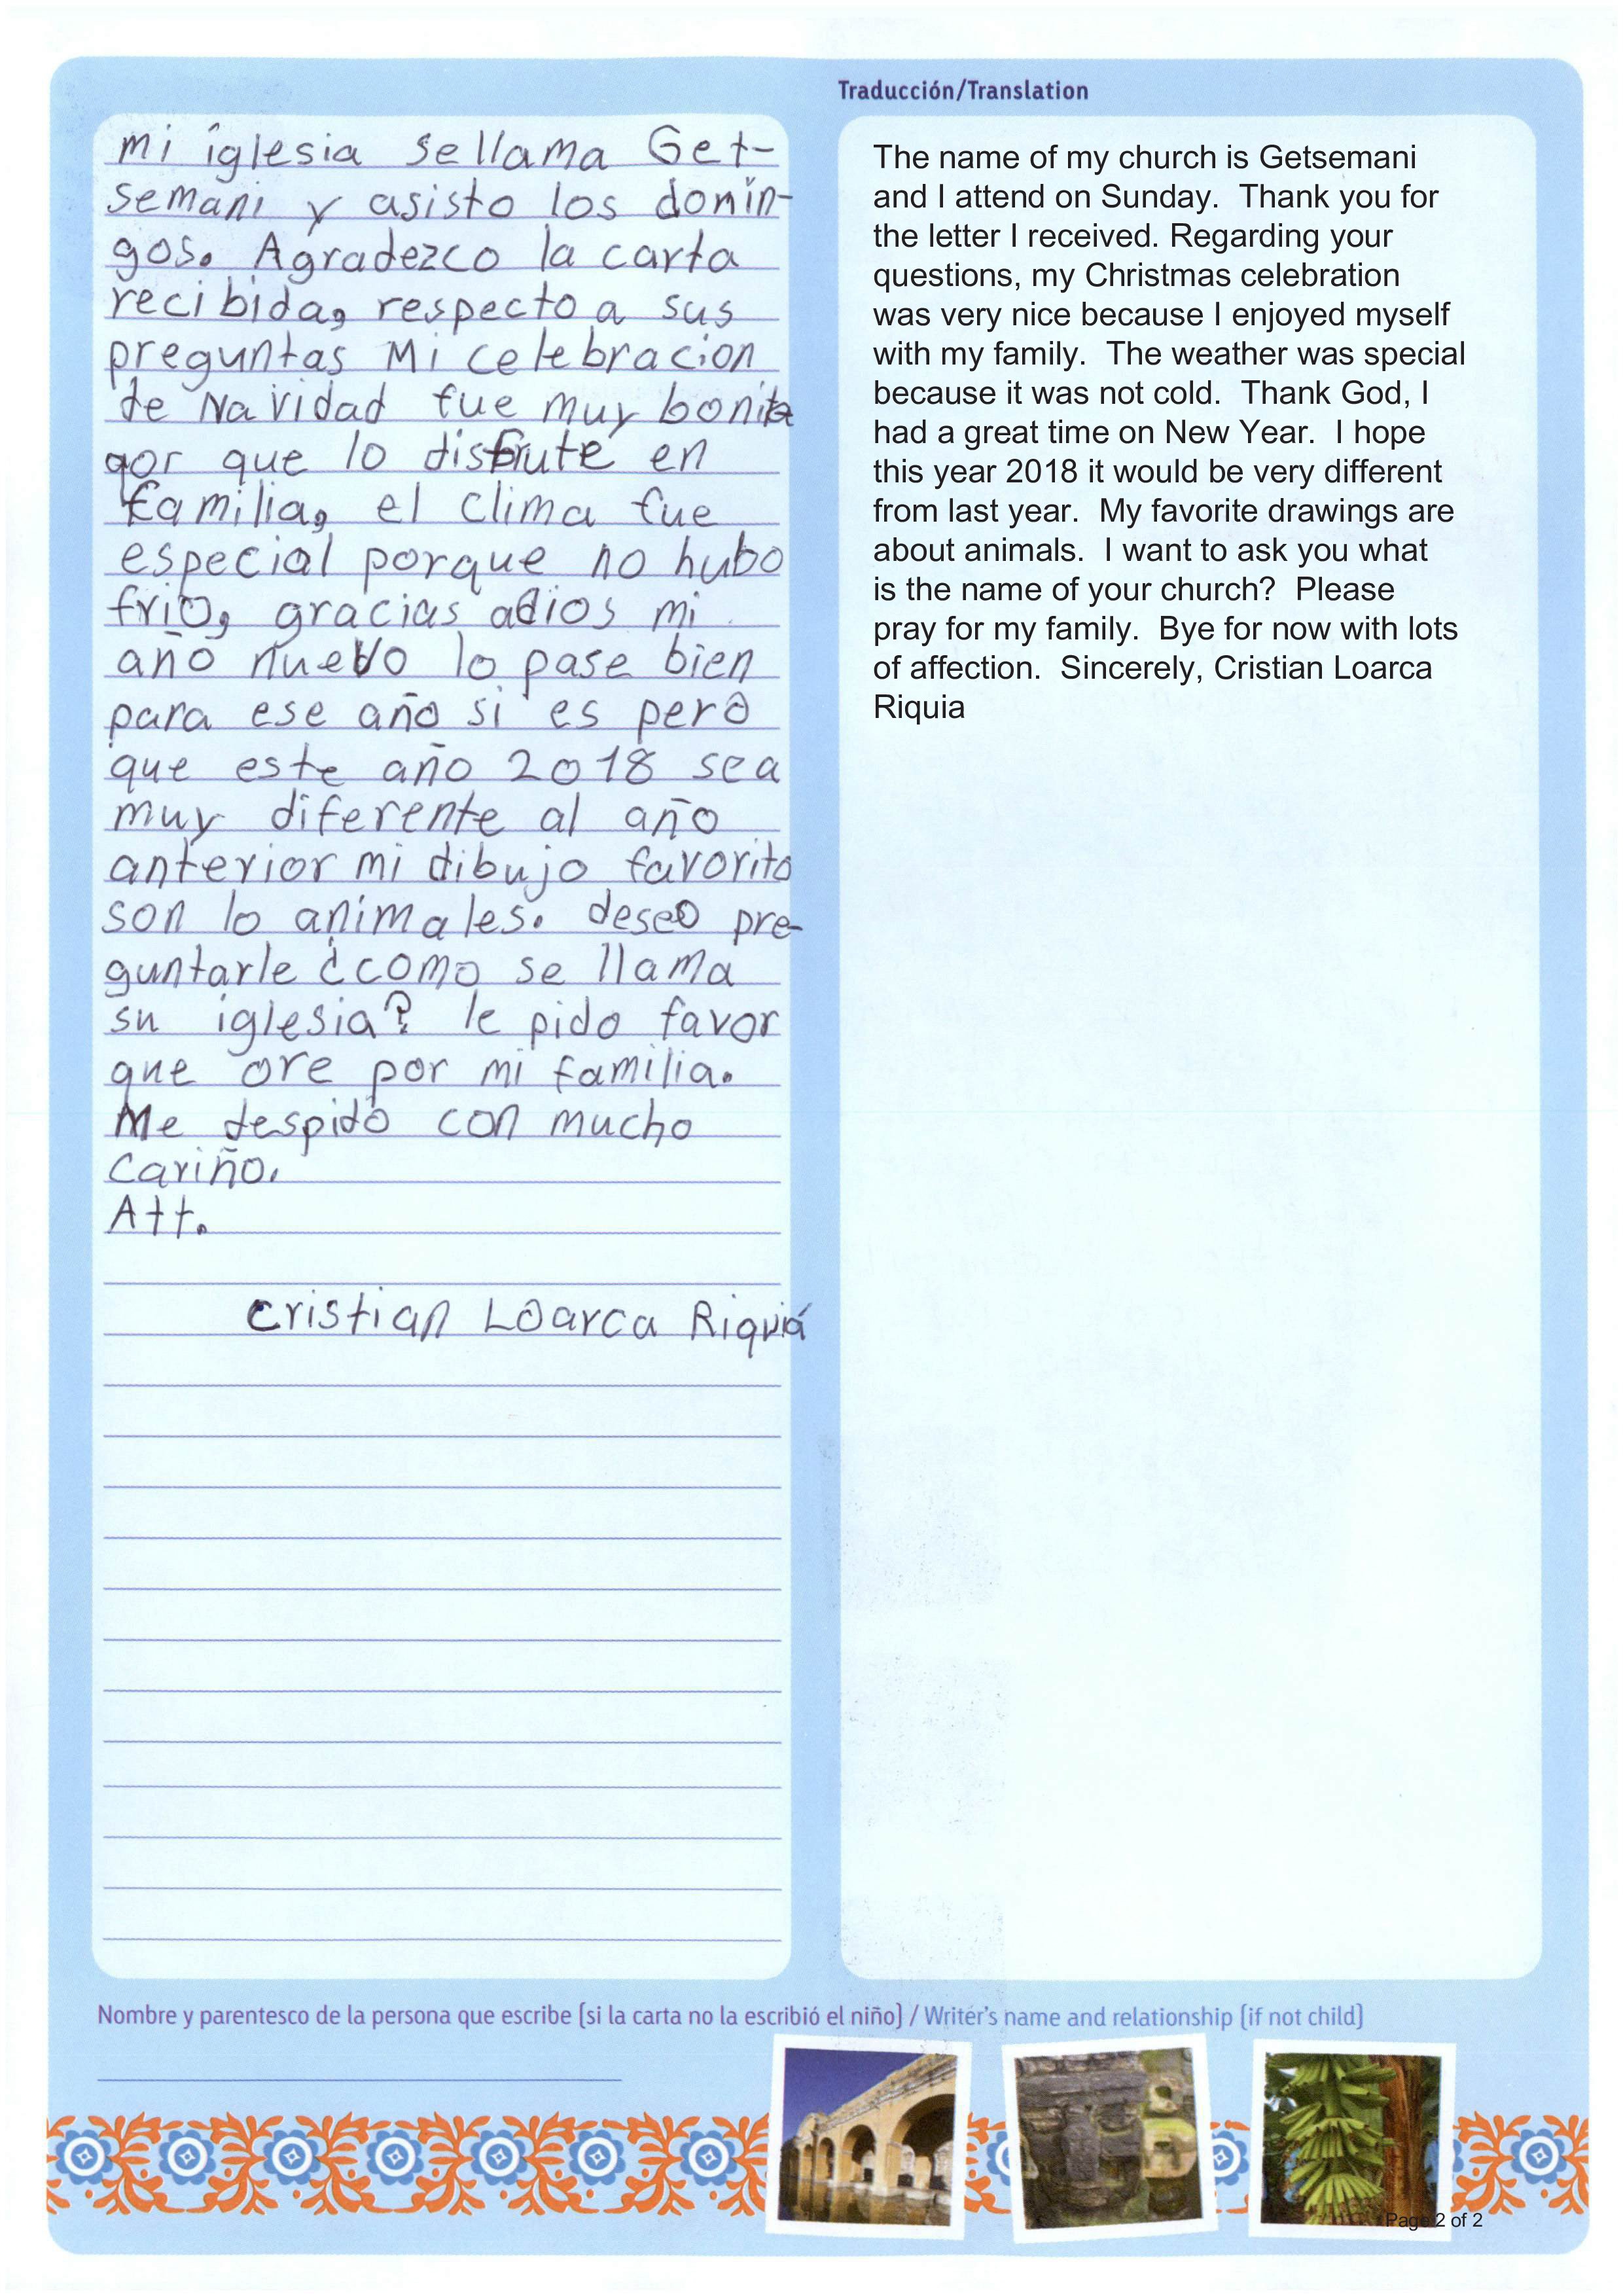 mi iglesia sellama Get-
semani y asisto los domin-
gos. Agradezco la carta
recibida, respecto a sus
preguntas Mi celebracion
de Navidad fue muy bonita
por que lo disfrute en
familia, el clima fue
especial porque no hubo
frio, gracias adios mi
año nuevo lo pase bien
para ese año si es pero
que este año 2018 sea
muy diferente al año
anterior mi dibujo favorito
son lo animales. deseo pre-
guntarle ¿como se llama
su iglesia? le pido favor
que ore por mi familia.
Me despido con mucho
cariño.
Att.
Cristian Loarca Riquiá
Traducción/Translation
The name of my church is Getsemani
and I attend on Sunday.  Thank you for
the letter I received. Regarding your
questions, my Christmas celebration
was very nice because I enjoyed myself
with my family.  The weather was special
because it was not cold.  Thank God, I
had a great time on New Year.  I hope
this year 2018 it would be very different
from last year.  My favorite drawings are
about animals.  I want to ask you what
is the name of your church?  Please
pray for my family.  Bye for now with lots
of affection.  Sincerely, Cristian Loarca
Riquia
Nombre y parentesco de la persona que escribe (si la carta no la escribió el niño) / Writer's name and relationship (if not child)
Page 2 of 2